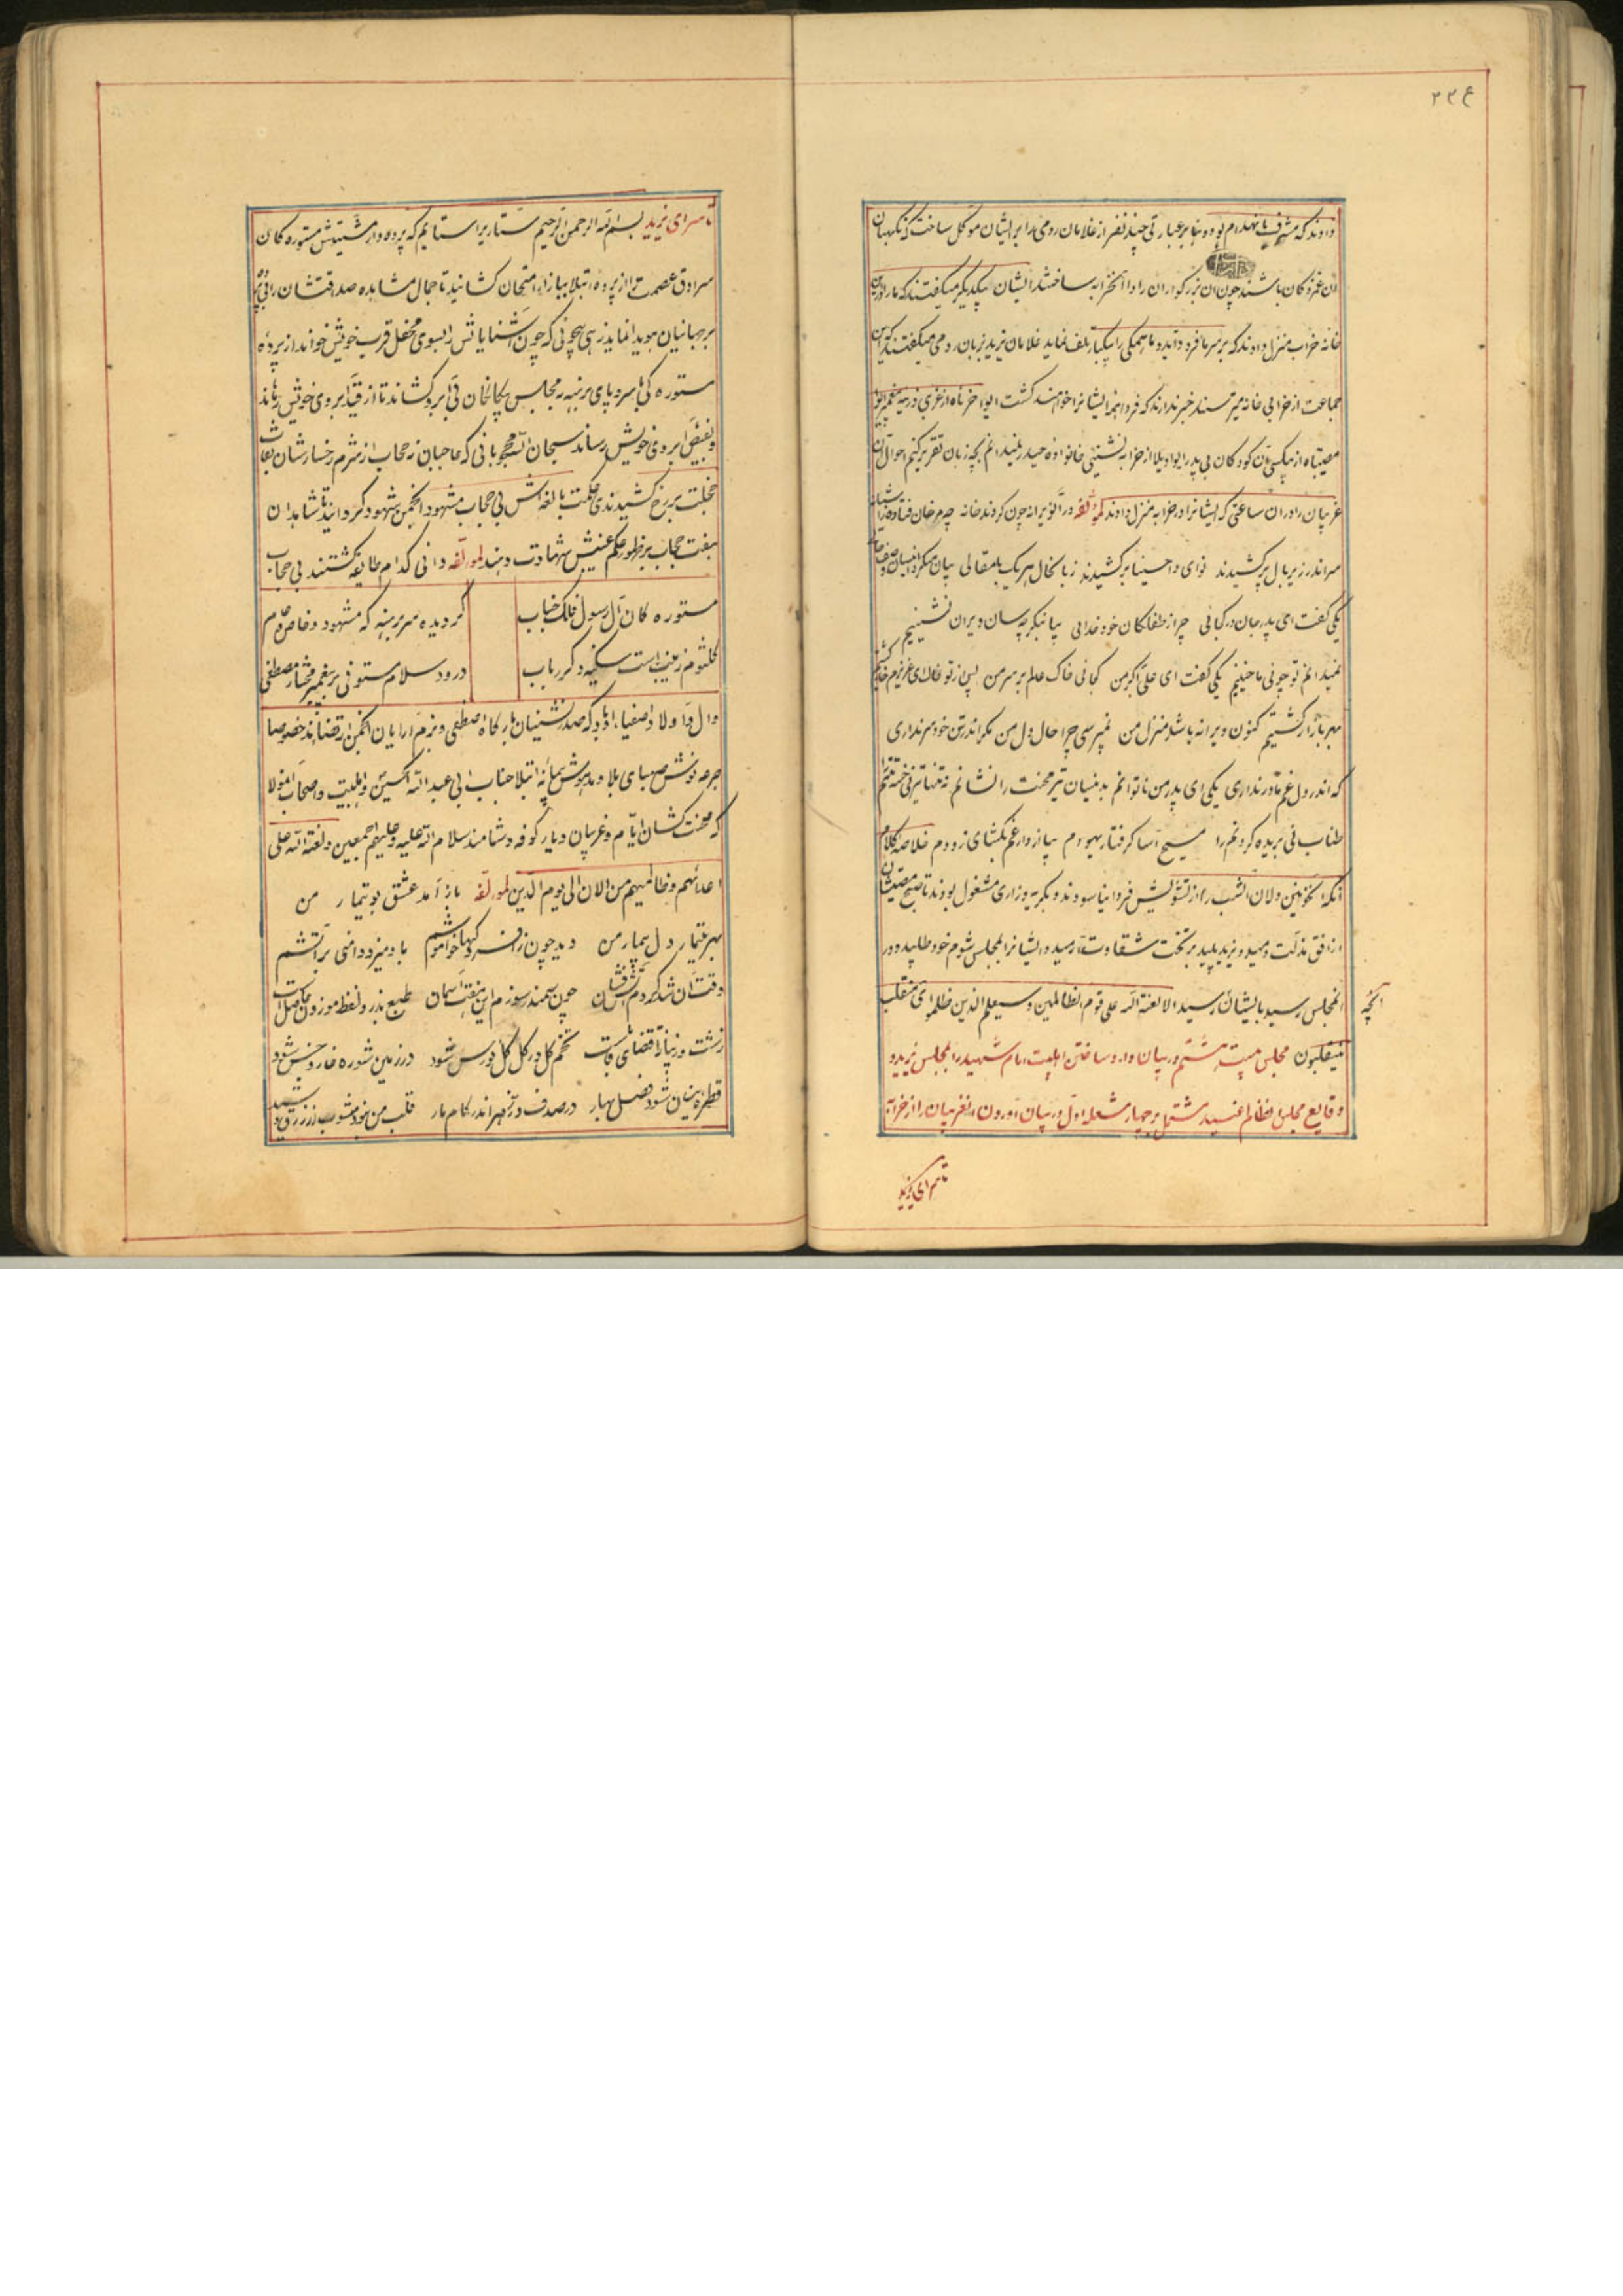 ۲۲۴
دادند که مشرف بانهدام بود و بنا بر عبارتی چند نفر از غلامان رومی را بر ایشان موکل ساخت که نگهبان
آن غمزدکان باشند چون آن بزرکواران را داخل خرابه ساختند ایشان بیکدیکر میکفتند که ما را درین
خانه خراب منزل دادند که بر سر ما فرود آید و ما همکی را بیکبار تلف نماید غلامان یزید بزبان رومی میکفتند که این
جماعت از خرابی خانه میترسند خبر ندارند که فردا همه ایشانرا خواهند کشت
مصیبتاه از بیکسی آن کودکان بی پدر واویلا از خرابه نشینی خانواده حیدر نمیدانم بچه زبان تقریر کنم احوال آن
غریبان را در آن ساعتی که ایشانرا در خرابه منزل دادند لمؤلفه در آن ویرانه چون کردند خانه چو مرغان فتاده ز آشیانه
سر اندر زیر بال پر کشیدند نوای وا حسینا بر کشیدند زبانحال هر یک بامقالی بیان میکرد
یکی کفت ای پدر جان در کجائی چرا از طفلکان خود جدائی بیا بنکر چه سان ویران نشینیم
نمیدانم تو چونی ما چنینیم یکی کفت ای علی اکبر من کجائی خاک عالم بر سر من پس از تو
بهر بازار کشتیم کنون ویرانه باشد منزل من نمیپرسی چرا حال دل من مکر اندر تن خود سر نداری
که اندر دل غم مادر نداری یکی ای پدر من ناتوانم بدینسان تیر محنت را نشانم نه تنها
طناب نی بریده کردنم را مسیح آسا کرفتار یهودم بیا از دار غم بکشای زودم خلاصه کلام
آنکه آنخونین دلان آنشب را از تشویش فردا نیاسودند و بکریه و زاری مشغول بودند تا صبح مصیبتشان
از افق مذلت دمید و یزید پلید بر تخت شقاوت آرمید و ایشانرا بمجلس شوم خود طلبید و در
آنمجلس رسید بایشان رسید الا لعنة الله علی قوم الظالمین و سیعلم الذین ظلموا ای منقلب
آنچه
ینقلبون مجلس بیست و هشتم در بیان وارد ساختن اهلبیت امام شهید را بمجلس یزید و
وقایع مجلس آنظالم عنید مشتمل بر چهار مشعله اول در بیان آوردن آنغریبان را از خرابه
تا سرای یزید
تا سرای یزید بسم الله الرحمن الرحیم ستاریرا ستایم که پرده دار مشیتش مستوره کان
سرادق عصمت را از پرده ابتلا ببازار امتحان کشانید تا جمال مشاهده صداقتشان را بی پرده
بر جهانیان هویدا نماید زهی بیچونی که چون آشنایانش را بسوی محفل قرب خویش خواند از پرده
مستوره کی با سر و پای برهنه بمجلس بیکانکان بی آبرو کشاند تا از قید آبروی خویش رهاند
و بفیض آبروی خویش رساند سبحان الله محجوبانی که حاجبان حجاب از شرم رخسارشان نقاب
خجلت بر رخ کشیدندی حکمت بالغه اش بی حجاب مشهود انجمن شهود کردانید تا شاهدان
هفت حجاب بر ظهور حکم عنبش شهادت دهند لمؤلفه دانی کدام طایفه کشتند بی حجاب
مستوره کان آل رسول فلک جناب کردیده سر برهنه که مشهود خاص و عام
کلثوم زینب است سکینه دکر رباب درود و سلام مستوفی بر پیغمبر مختار مصطفی
و آل و اولاد اصفیاء او باد که صدرنشینان بارکاه اصطفی و بزم آرایان انجمن ارتضایند خصوصا
جرعه نوش صهبای بلا و مدهوش پیمانه ابتلا جناب ابی عبد الله الحسین و اهلبیت و اصحاب آنمولا
که محنت کشان ایام و غریبان دیار کوفه و شامند سلام الله علیه و علیهم اجمعین و لعنة الله علی
اعدائهم و ظالمیهم من الان الی یوم الدین لمؤلفه باز آمد عشق بو تیمار من
بهر تیمار دل بیمار من دید چون ز افسردکیها خامشم باد میزد دامنی بر آتشم
وقت آن شد کز دم آتش فشان چون سمند سوزم این هفت آسمان طبع بذر و لفظ موزون حاصل است
زشت و زیبا اقتضای قابلست تخم کل در کل کل نورس شود در زمین شوره خار و خس شود
قطره نیسان شود فصل بهار در صدف در زهر اندر کام مار قلب من